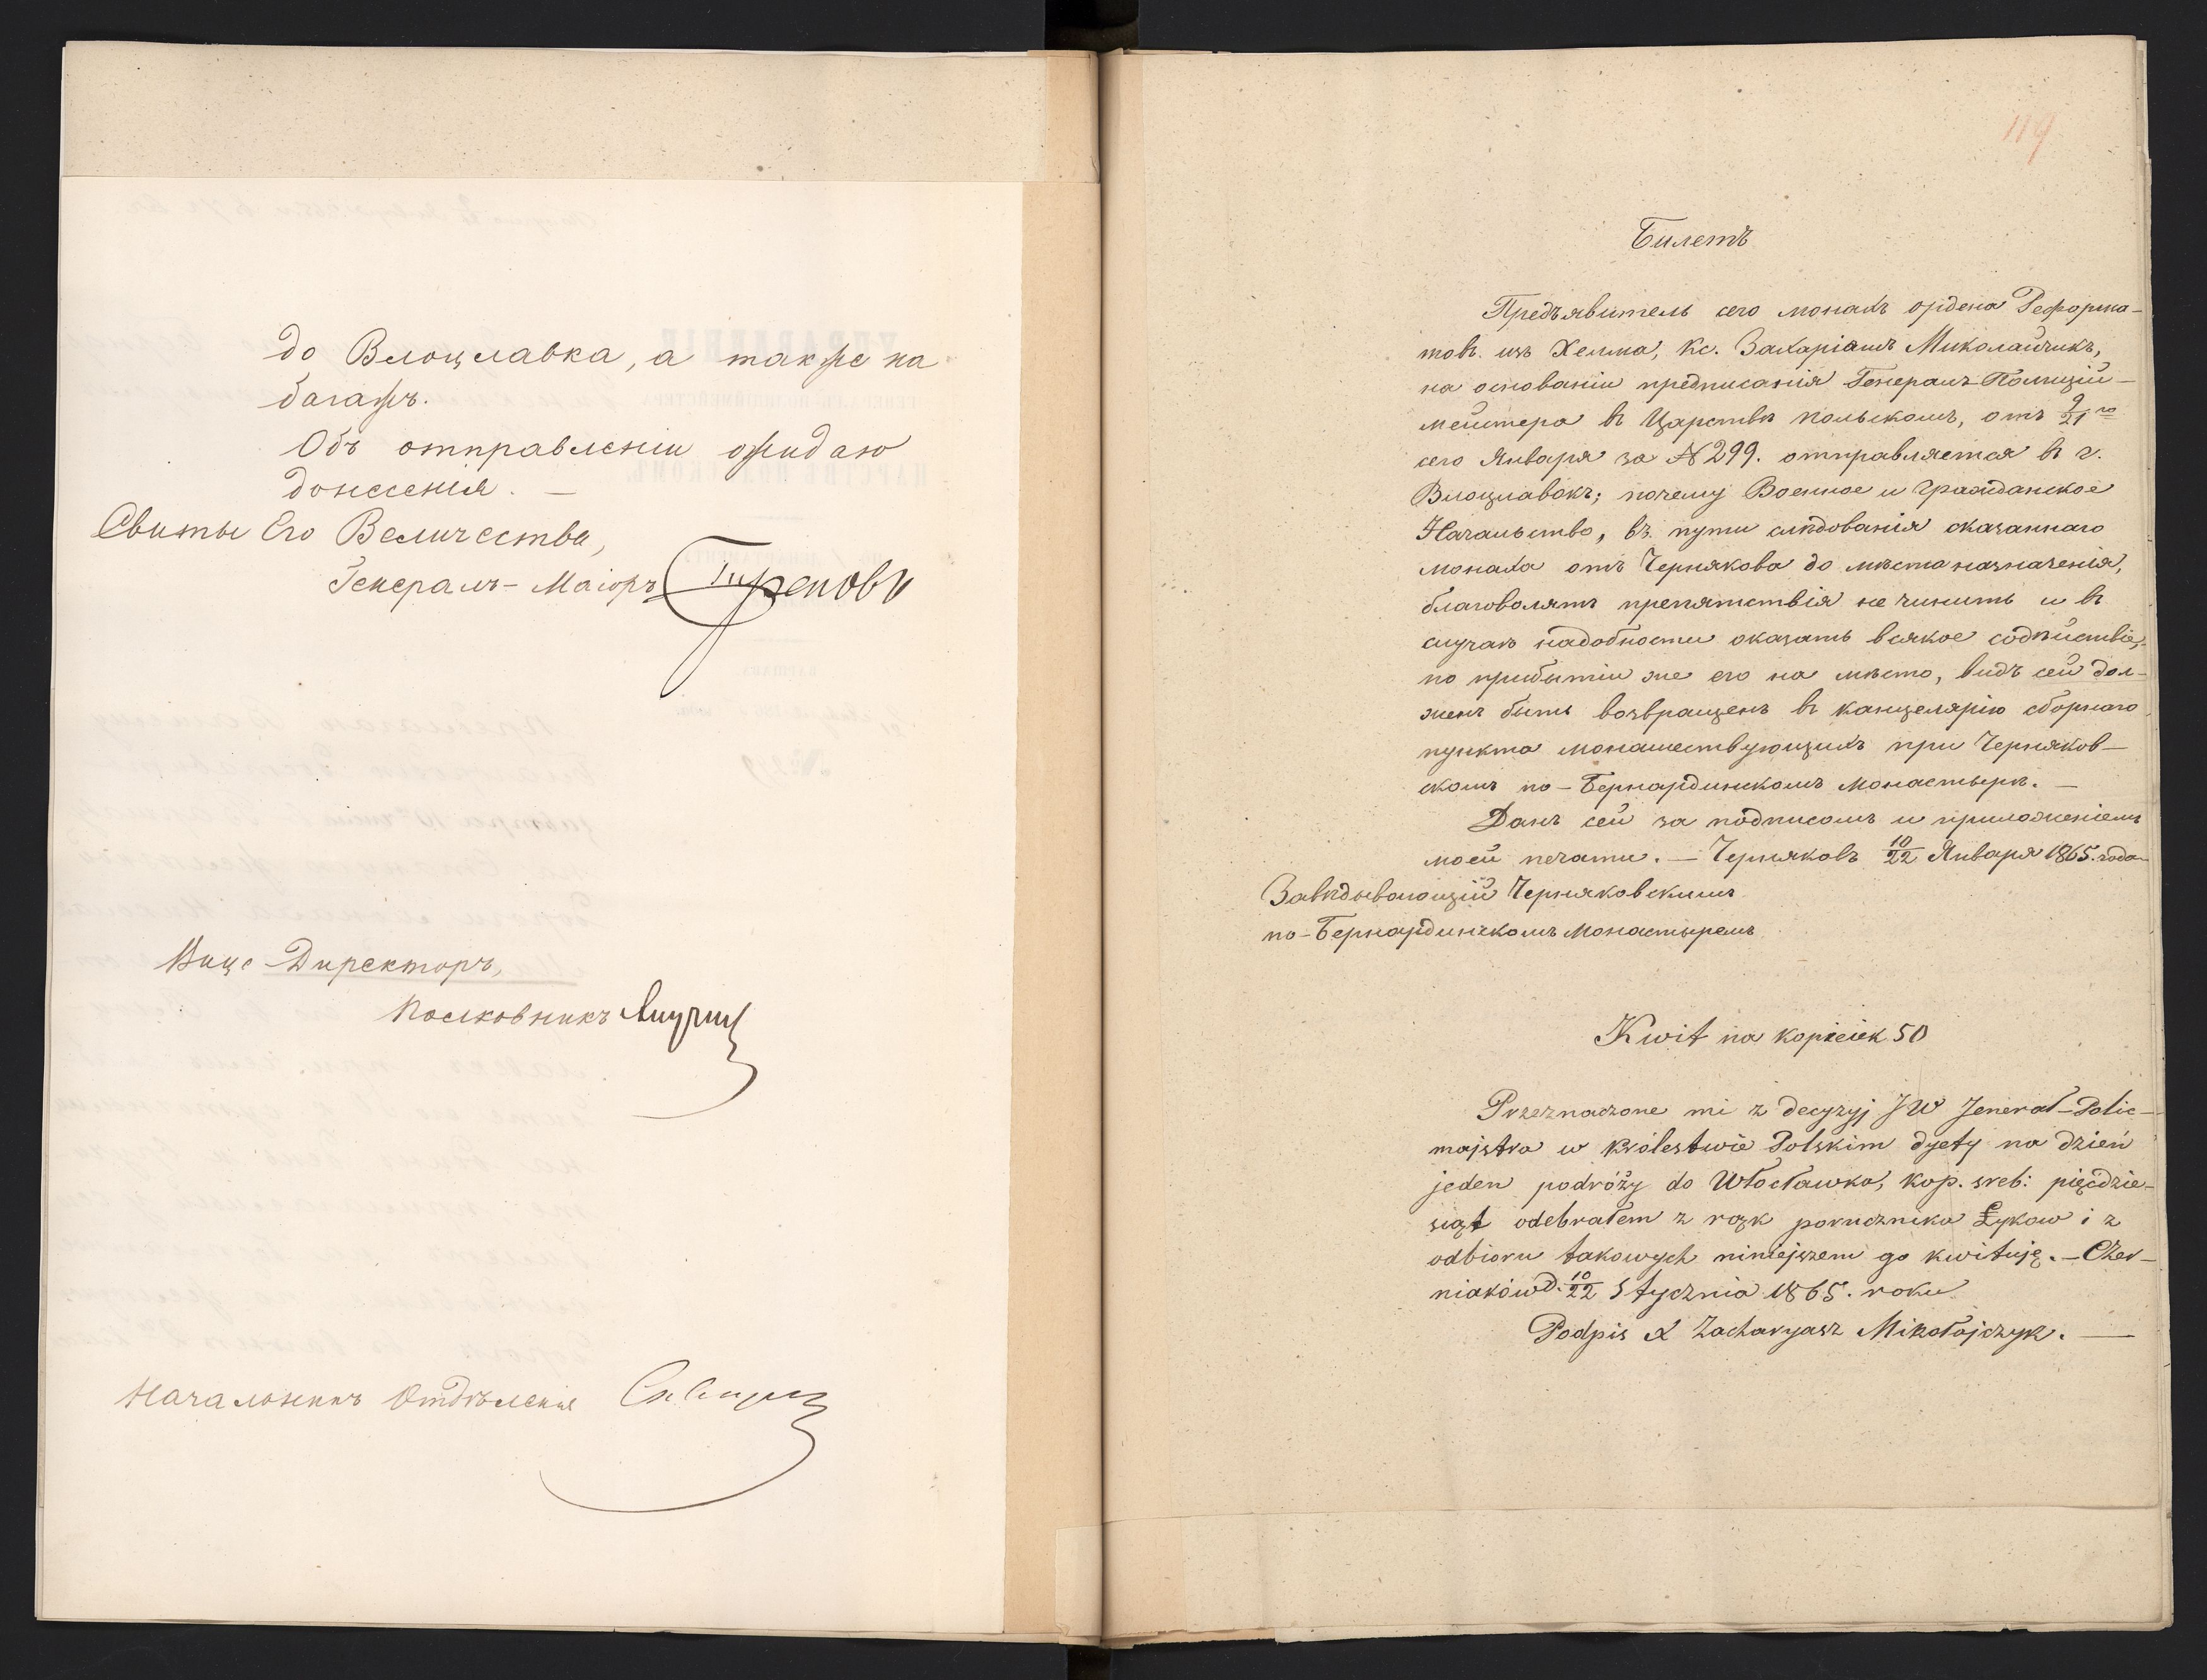 до Влоцлавка, а также на
багажъ.
Объ отправленіи ожидаю
донесенія. —
Свиты Его Величества,
Генералъ-Маіоръ Треповъ
Вице-Директоръ,
Полковникъ
Начальникъ Отдѣленія
119
Билетъ
Предъявитель сего монахъ ордена Реформа-
товъ изъ Хелма, Кс. Захаріашъ Миколайчикъ,
на основаніи предписанія Генералъ-Полиціи-
мейстера въ Царствѣ Польскомъ, отъ 9/21 го
сего Января за № 299. отправляется въ г.
Влоцлавокъ; почему Военное и Гражданское
Начальство, въ пути слѣдованія сказаннаго
монаха отъ Чернякова до мѣста назначенія,
благоволятъ препятствія не чинить и въ
случаѣ надобности оказать всякое содѣйствіе,
по прибытіи же его на мѣсто, видъ сей дол-
женъ быть возвращенъ въ канцелярію сборнаго
пункта монашествующихъ при Черняков-
скомъ по-Бернардинскомъ монастырѣ. —
Данъ сей за подписомъ и приложеніемъ
моей печати. — Черняковъ 10/22 Января 1865. года
Завѣдывающій Черняковскимъ
по-Бернардинскомъ Монастыремъ
Kwit na kopieiek 50
Przeznaczone mi z decyzyj JW Jenerał-Polic-
majstra w Królestwie Polskim dyety na dzień
jeden podróży do Włocławka, kop. sreb: pięćdzie-
siąt odebrałem z rąk porucznika Łykow i z
odbioru takowych niniejszem go kwituję. — Czer-
niaków d. 10/22 Stycznia 1865. roku
Podpis X Zacharyasz Mikołajczyk. —